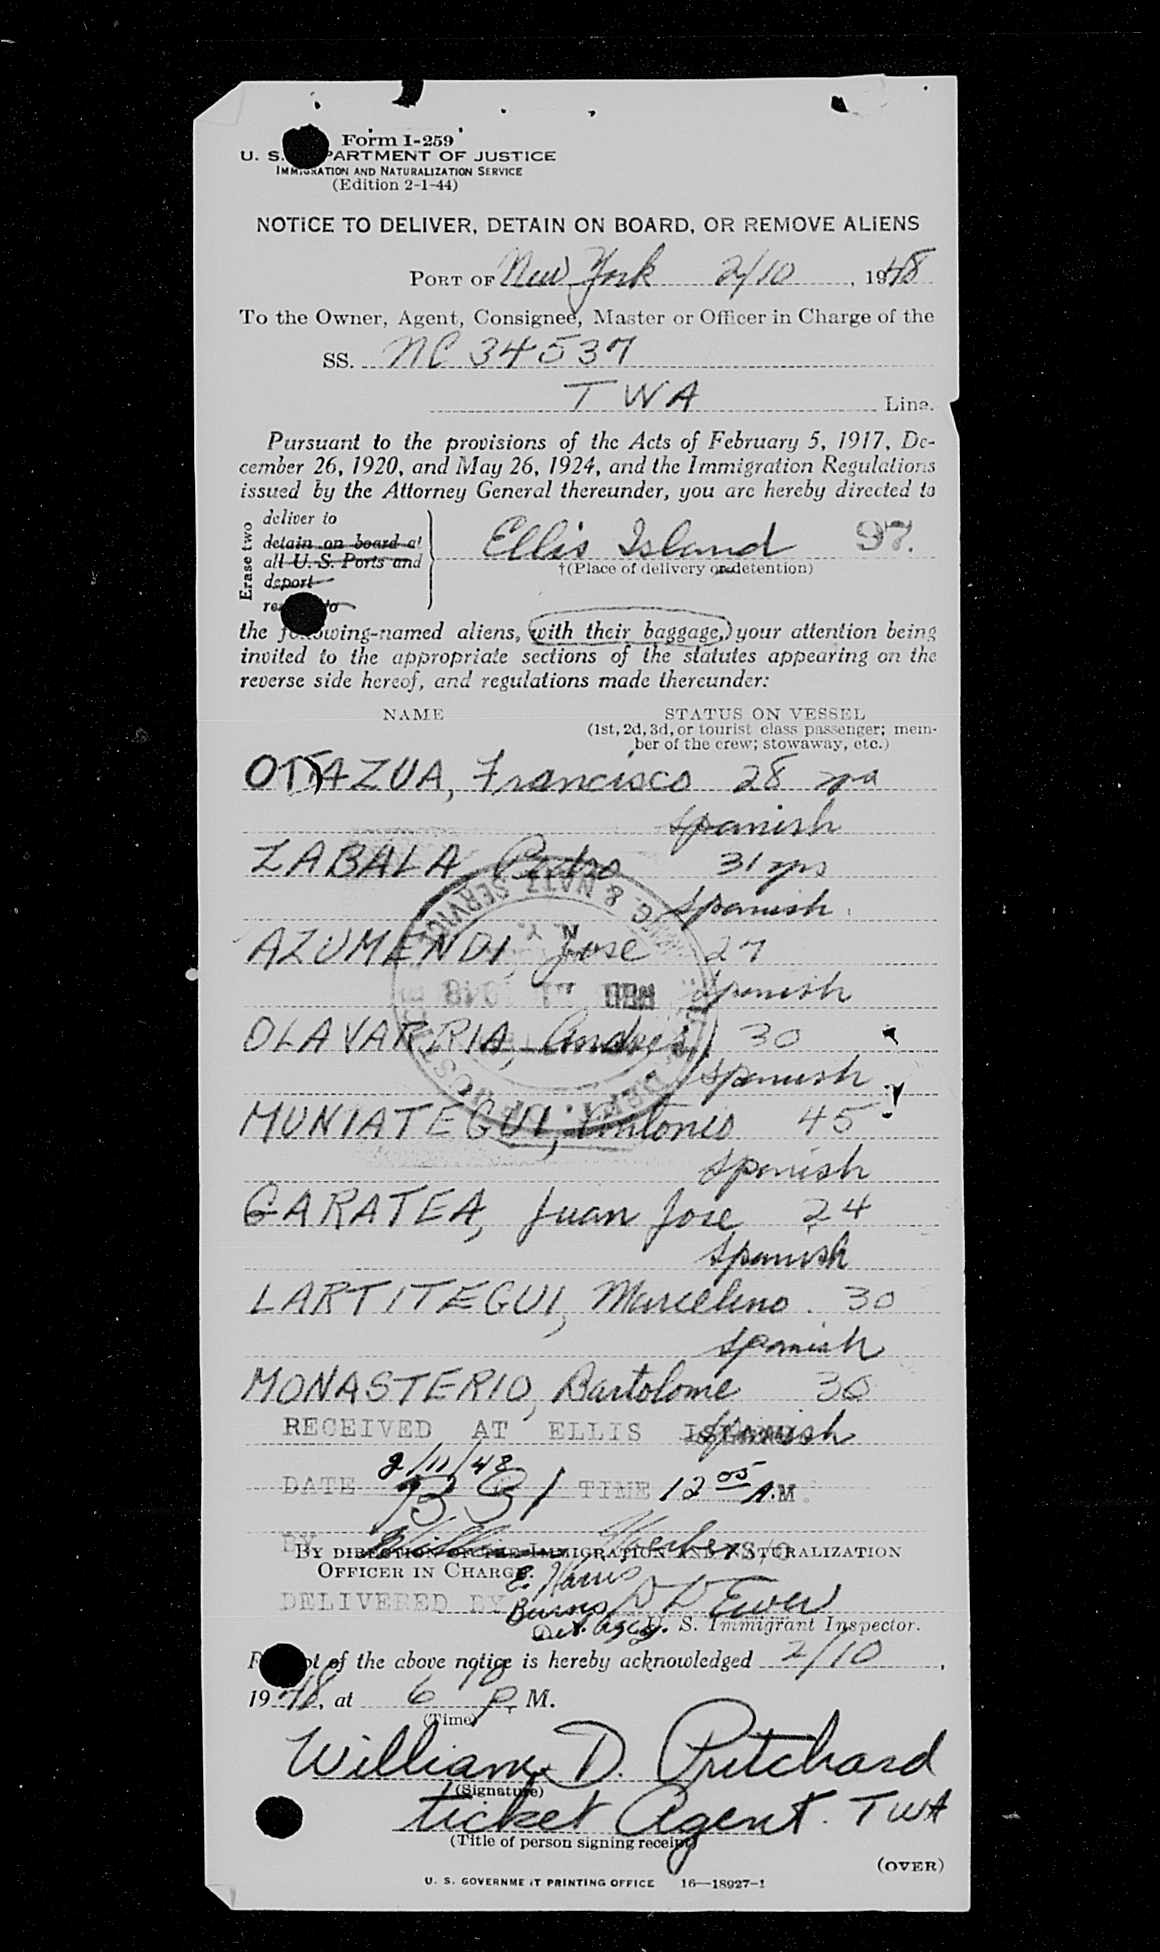 Form I-259
U. S. DEPARTMENT OF JUSTICE
IMMIGRATION AND NATURALIZATION SERVICE
(Edition 2-1-44)
NOTICE TO DELIVER, DETAIN ON BOARD, OR REMOVE ALIENS
PORT OF New York 2/10, 1948
To the Owner, Agent, Consignee, Master or Officer in Charge of the
SS. NC 34537
TWA Line.
Pursuant to the provisions of the Acts of February 5, 1917, De-
cember 26, 1920, and May 26, 1924, and the Immigration Regulations
issued by the Attorney General thereunder, you are hereby directed to
Erase two
deliver to
detain on board at
all U. S. Ports and
deport
Ellis Island 97.
†(Place of delivery or detention)
the following-named aliens, with their baggage, your attention being
invited to the appropriate sections of the statutes appearing on the
reverse side hereof, and regulations made thereunder:
NAME STATUS ON VESSEL
(1st, 2d, 3d, or tourist class passenger; mem-
ber of the crew; stowaway, etc.)
OTAZUA, Francisco 28
Spanish
ZABALA, Pedro 31 yrs
Spanish
AZUMENDI, Jose 27
Spanish
OLAVARRIA, Andres 30
Spanish
MUNIATEGUI, Antonio 45
Spanish
GARATEA, Juan Jose 24
Spanish
LARTITEGUI, Marcelino 30
Spanish
MONASTERIO, Bartolome 30
Spanish
RECEIVED AT ELLIS ISLAND
DATE 2/11/48 TIME 12 05 A.M.
BY
BY DIRECTION OF THE IMMIGRATION AND NATURALIZATION
OFFICER IN CHARGE.
E. Harris
DELIVERED BY Burns
Det. Agcy. U. S. Immigrant Inspector.
Receipt of the above notice is hereby acknowledged 2/10,
1948, at 6 P. M.
(Time)
William D. Pritchard
(Signature)
ticket Agent. TWA
(Title of person signing receipt)
(OVER)
U. S. GOVERNMENT PRINTING OFFICE 16—18927-1